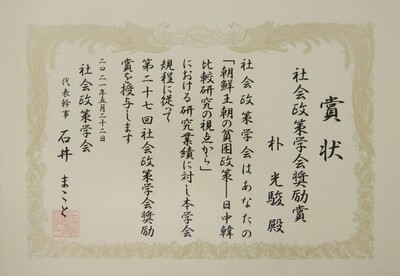 賞状
社会政策学会奨励賞
朴光駿殿
社会政策学会はあなたの
「朝鮮王朝の貧困政策―日中韓
比較研究の視点から」
における研究業績に対し本学会
規程に従って
第二十七回社会政策学会奨励
賞を授与します
二〇二一年五月二十二日
社会政策学会
代表幹事 石井まこと